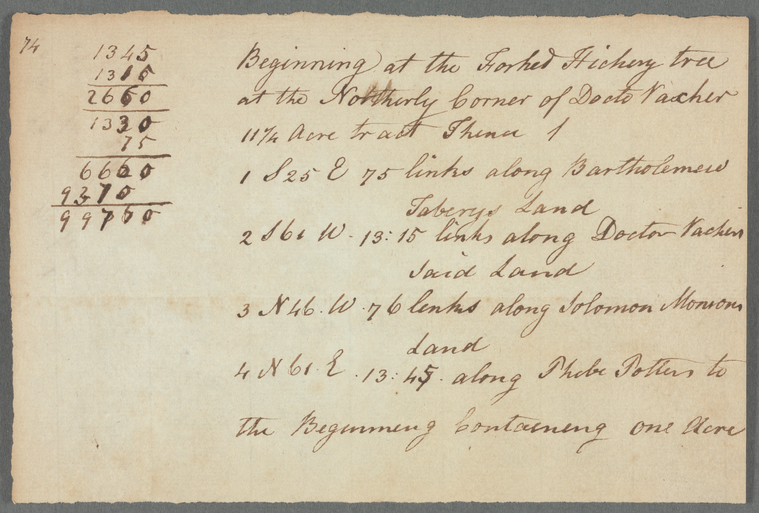 74
1345
1315
2660
1330
75
6660
9310
99750
Beginning at the Forked Hickery tree
at the Northerly Corner of Docto Vacher
11¼ Acre tract Thence
1 S 25 E 75 links along Bartholemew
Taberys Land
2 S 61 W. 13:15 links along Doctor Vachers
said Land
3 N 46. W. 76 links along Solomon Monsons
Land
4 N 61. E. 13:45. along Phebe Potters to
the Beginneng Containeng one Acre